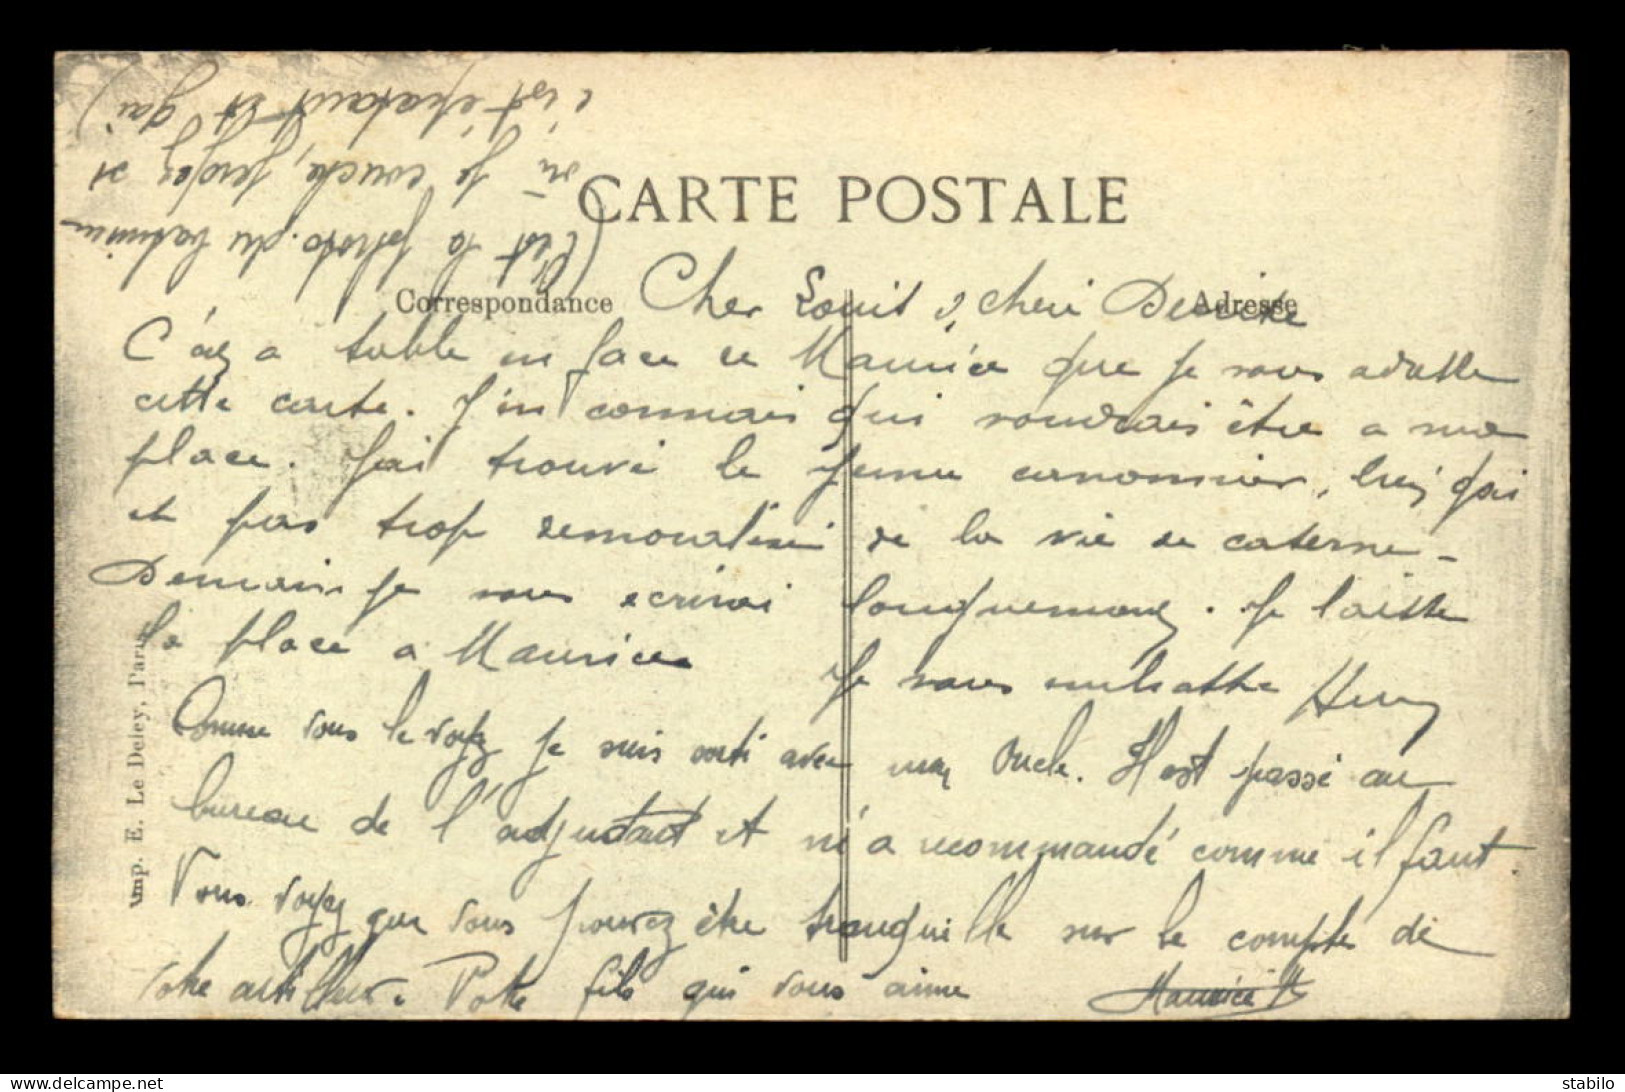 (C'est la photo du batiment
où je couche, jugez si
c'est épatant et gai)
CARTE POSTALE
Correspondance
Adresse
Cher Louis, cheri
C'est a table en face de Maurice que je vous adresse
cette carte. J'en connais qui voudrais être a ma
place. J'ai trouvé le jeune canonnier, très gai
et pas trop demoralisé de la vie de caserne -
Demain je vous ecrirai longuement. Je laisse
la place a Maurice
Je vous embrasse Henry
Comme vous le voyez je suis sorti avec mon Oncle. Il est passé au
bureau de l'adjudant et m'a recommandé comme il faut.
Vous voyez que vous pouvez être tranquille sur le compte de
votre artilleur. Votre fils qui vous aime Maurice
Imp. E. Le Deley, Paris
stabilo